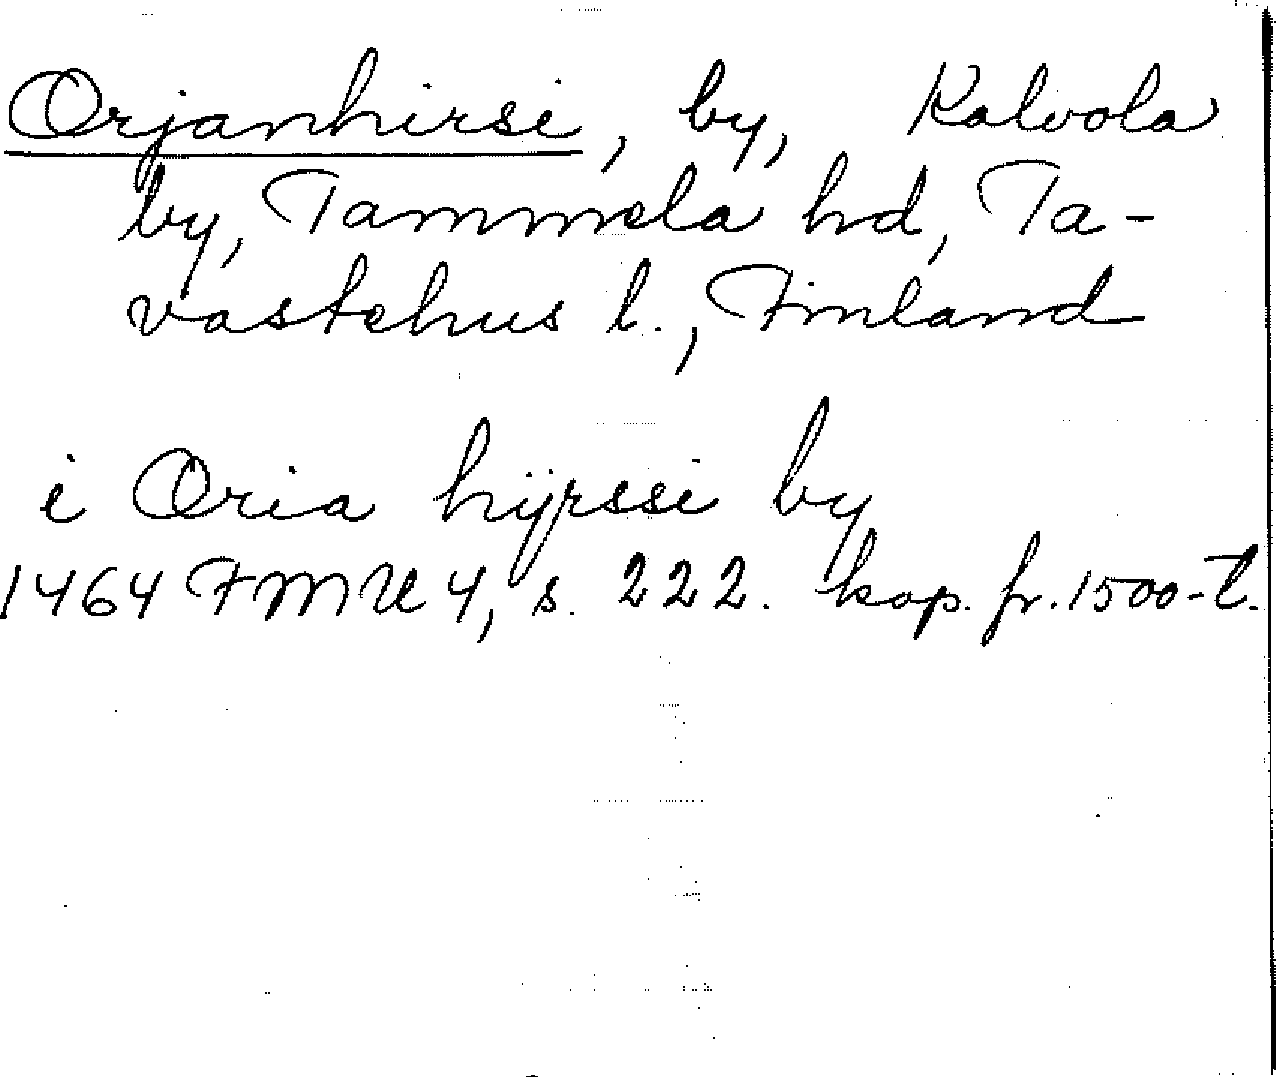 Orjanhirsi, by, Kalvola
by, Tammela hd, Ta-
vastehus l., Finland
i Oria hijrssi by
1464 FMU 4, s. 222. kop. fr. 1500-t.